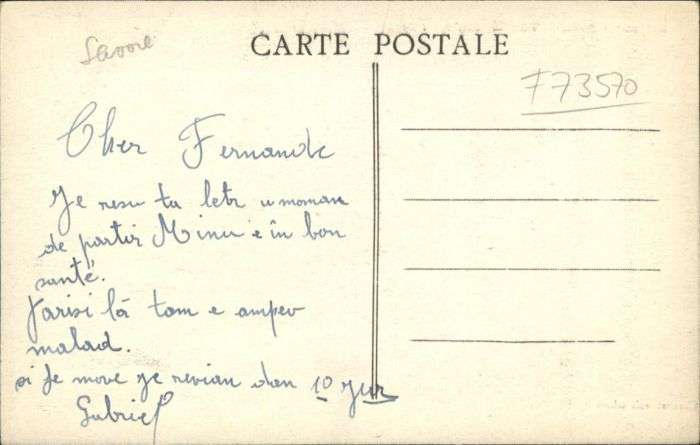 Savoie
CARTE POSTALE
F73570
Cher Fernande
Je resu ta letr u moman
de partir Minu e in bon
santé.
Jarisi là tam e ampev
malad.
si fe move je revian dan 10 jur
Gabriel